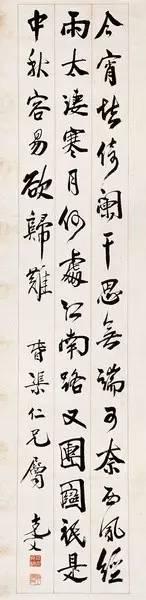 今宵怯倚闌干思無端可奈西風經
雨太凄寒月何處江南路又團圞祇是
中秋容易欲歸難 渠仁兄屬 克文